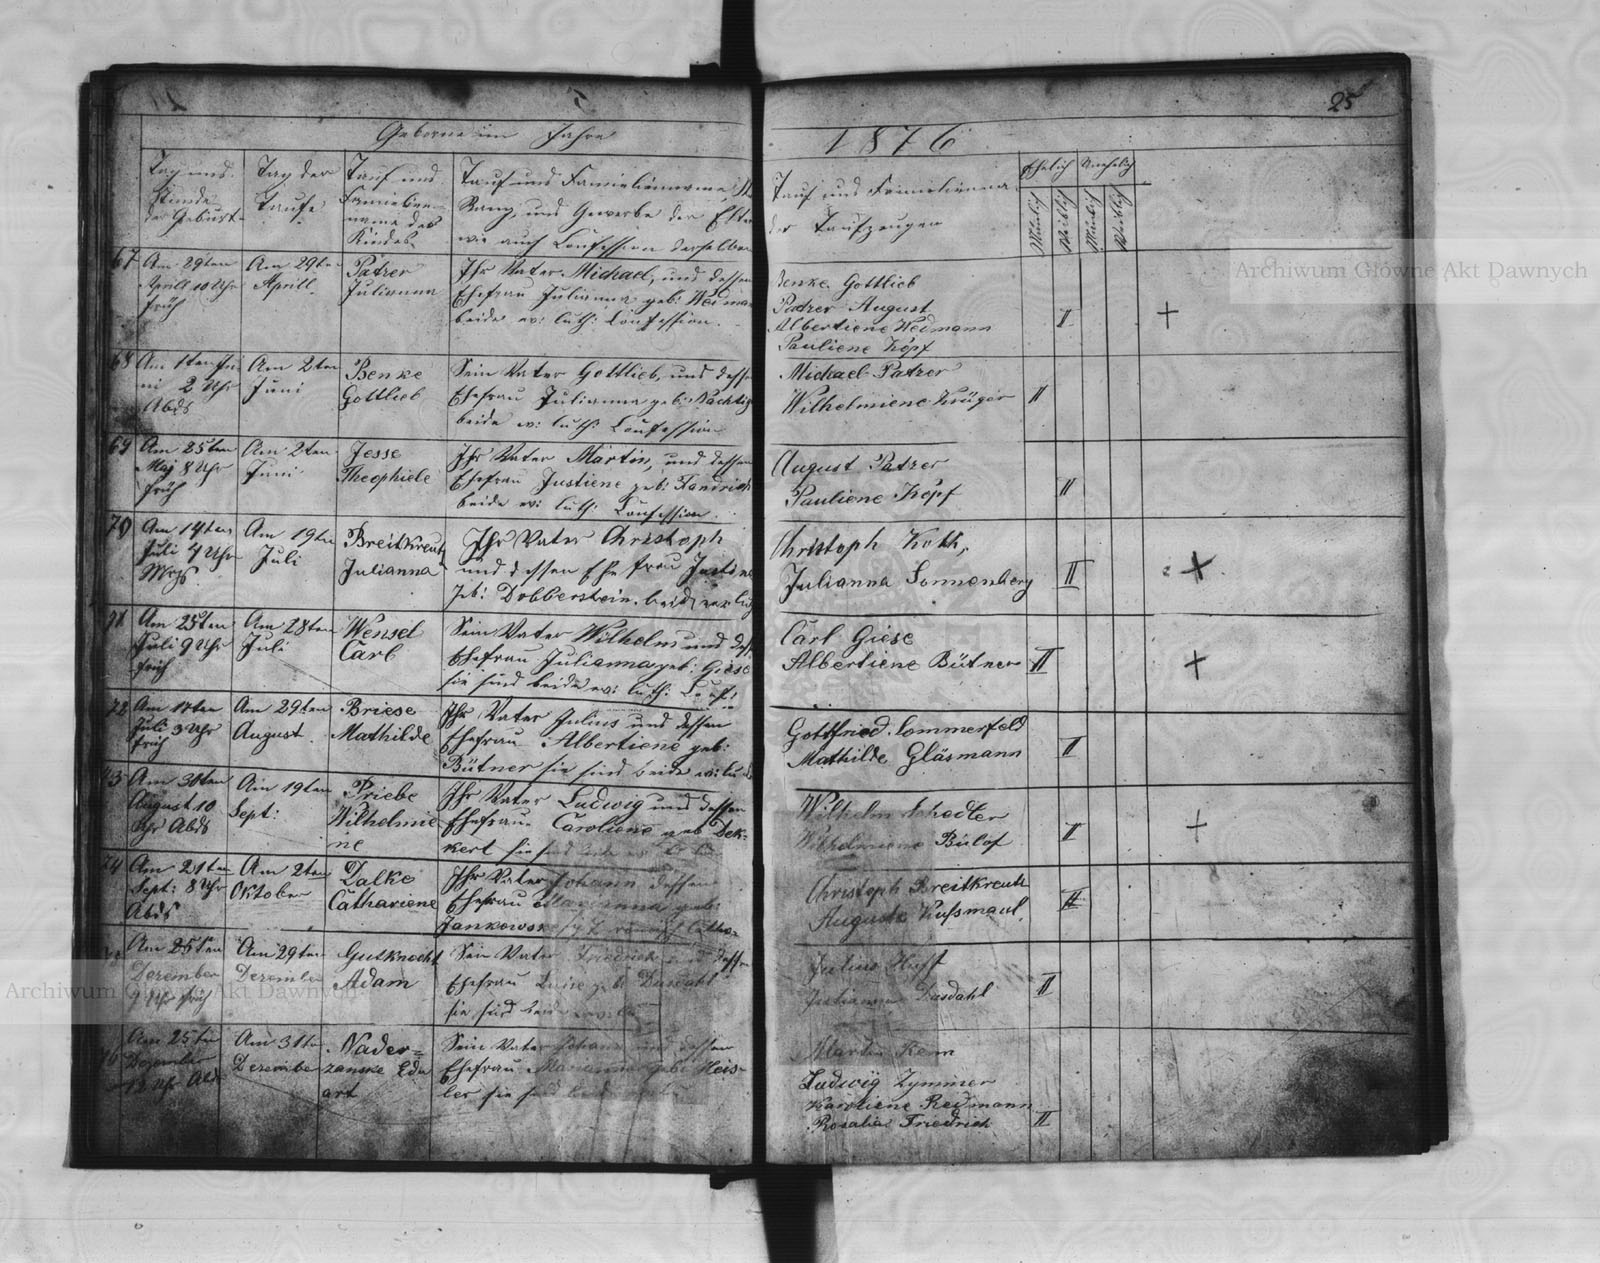 25
Geborne im Jahre
1876
Tag und Stunde der Geburt
Tag der Taufe
Tauf und Familienname des Kindes
Tauf und Familienname,
Rang, und Gewerbe der Eltern
wie auch Confession derselben
Tauf und Familienname
der Taufzeugen
Ehelich Unehelich
Mänlich Weiblich Mänlich Weiblich
67
Am 29ten
Aprill 10 Uhr
früh
Am 29ten
Aprill
Patzer
Julianna
Ihr Vater Michael, und dessen
Ehefrau Julianna geb: Weima
beide ev: luth: Confession.
Benke Gottlieb
Patzer August
Albertiene Weimann
Pauliene Köpf
II
+
68
Am 1ten Ju
ni 2 Uhr
Abds
Am 2ten
Juni
Benke
Gottlieb
Sein Vater Gottlieb, und dessen
Ehefrau Julianna geb: Nachtig
beide ev: luth: Confession
Michael Patzer
Wilhelmiene Krüger
II
69
Am 25ten
Maj 8 Uhr
früh
Am 2ten
Juni
Jesse
Theophiele
Ihr Vater Martin, und dessen
Ehefrau Justiene geb: Fandrich
beide ev: luth: Confession.
August Patzer
Pauliene Köpf
II
70
Am 14ten
Juli 4 Uhr
Mrgs.
Am 19ten
Juli
Breitkreutz
Julianna
Ihr Vater Christoph
und dessen Ehefrau Justine
geb: Dobberstein. beide ev: luth
Christoph Koth,
Julianna Sonnenberg
II
+
71
Am 25ten
Juli 9 Uhr
früh
Am 28ten
Juli
Wensel
Carl
Sein Vater Wilhelm und dess
Ehefrau Julianna geb: Giese
sie sind beide ev: luth: Conf:
Carl Giese
Albertiene Bütner
II
+
72
Am 18ten
Juli 3 Uhr
früh
Am 29ten
August
Briese
Mathilde
Ihr Vater Julius und dessen
Ehefrau Albertiene geb:
Bütner sie sind beide ev: lu
Gottfried Sommerfeld
Mathilde Gläsmann
II
73
Am 30ten
August 10
Uhr Abds
Am 19ten
Sept:
Priebe
Wilhelmie
ne
Ihr Vater Ludwig und dessen
Ehefrau Caroliene geb Dek-
kert sie sind beide ev:
Wilhelm Schedler
Wilhelmiene Bülof
II
+
74
Am 21ten
Sept: 8 Uhr
Abds
Am 2ten
Oktober
Dalke
Cathariene
Ihr Vater Johann dessen
Ehefrau Marianna geb:
Jankowske
Christoph Breitkreutz
Auguste Kußmaul.
II
75
Am 25ten
Dezember
9 Uhr früh
Am 29ten
Dezember
Gutknecht
Adam
Sein Vater Friedrich und dessen
Ehefrau Luise geb: Dusdahl
sie sind beide
Julius Huff
Julianna Dusdahl
II
76
Am 25ten
Dezember
12 Uhr Abds
Am 31ten
Dezember
Nader-
zanske Edu
art
Sein Vater Johann und dessen
Ehefrau Marianna geb: Heis-
ler sie sind beide
Martin Kenn
Ludwig Zymmer
Karoliene Redmann
Rosalie Friedrich
II
Archiwum Główne Akt Dawnych
Archiwum Główne Akt Dawnych